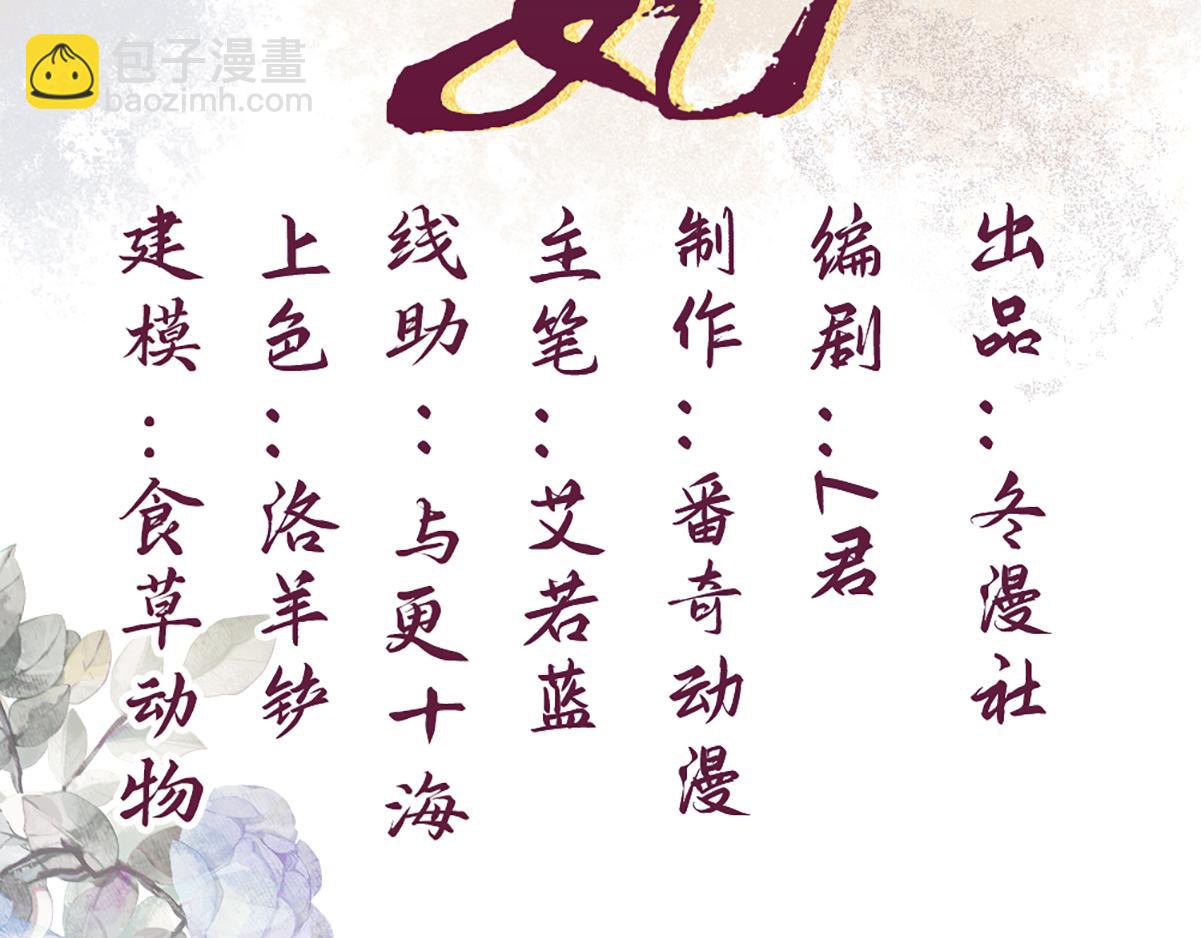 包子漫畫
baozimh.com
出品：冬漫社
编剧：T君
制作：番奇动漫
主笔：艾若蓝
线助：与更十海
上色：洛羊铲
建模：食草动物